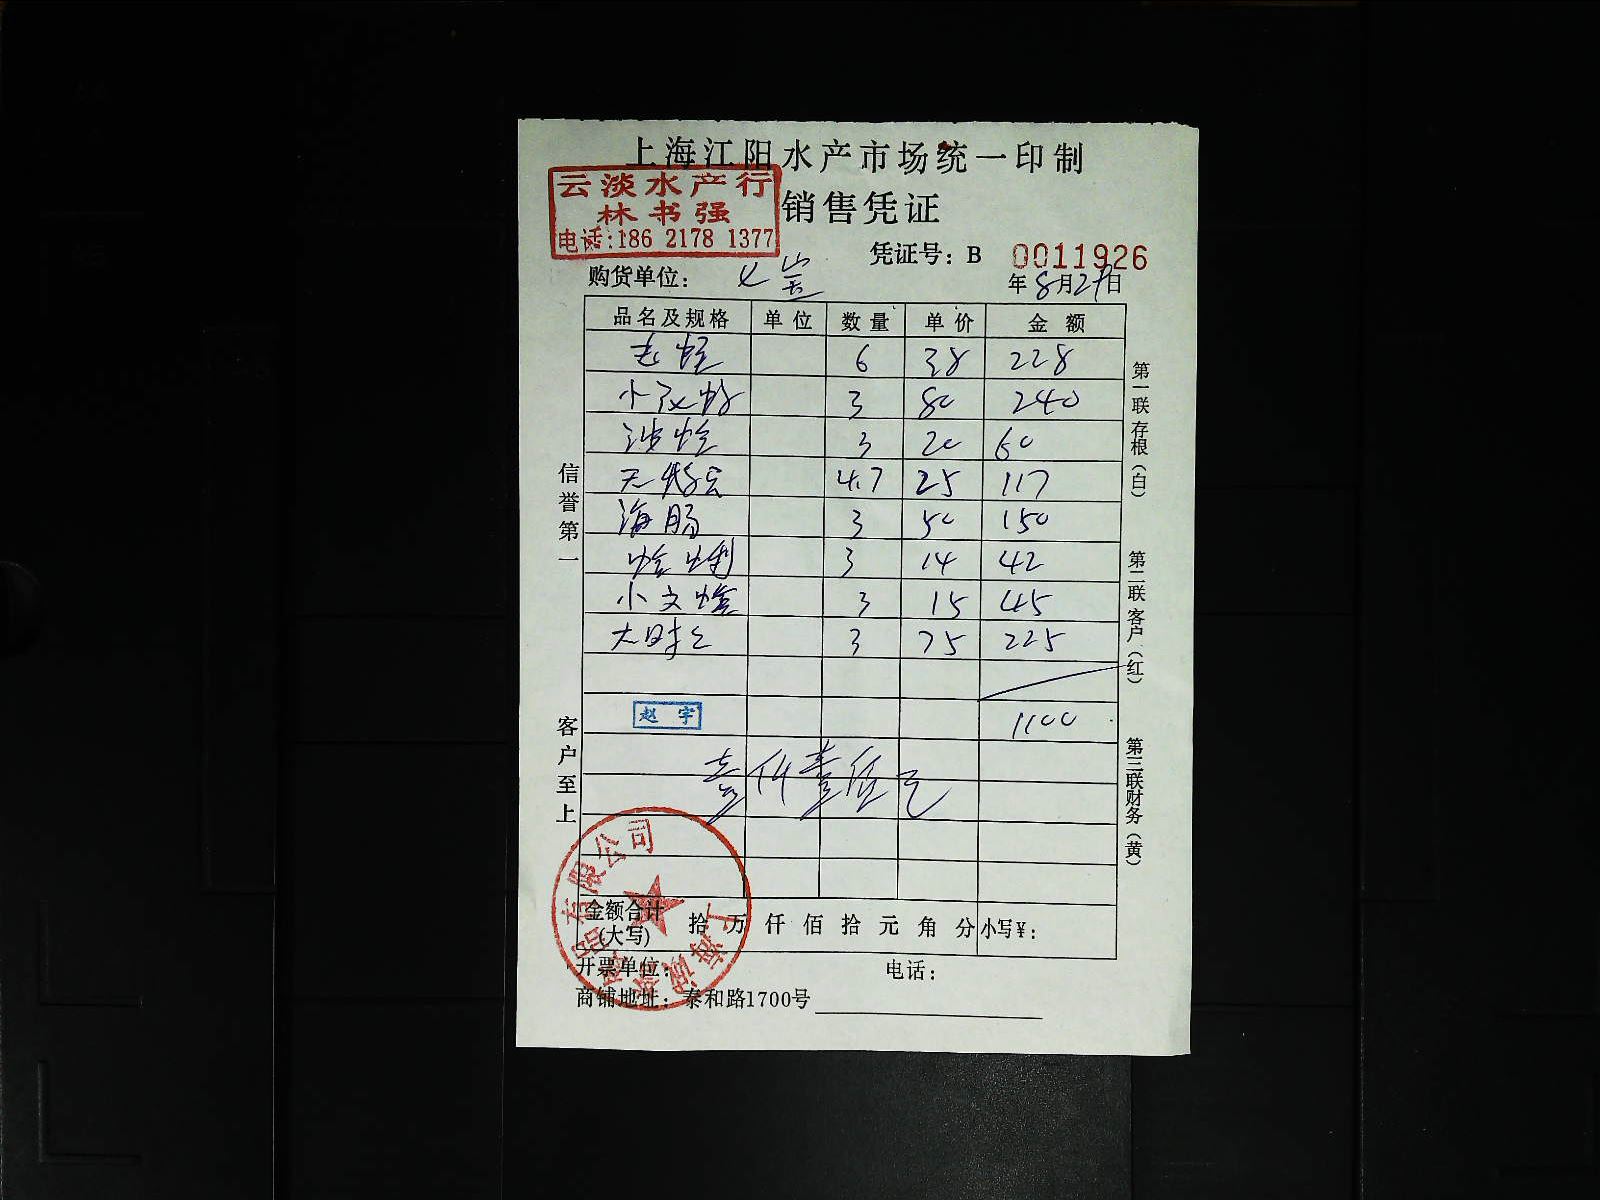 上海江阳水产市场统一印制
云淡水产行
林书强
电话:186 2178 1377
销售凭证
凭证号: B 0011926
购货单位: 七宝
年8月29日
品名及规格 单位 数量 单价 金额
6 38 228
3 80 240
3 20 60
4.7 25 117
海肠 3 50 150
蛤蜊 3 14 42
小文蛤 3 15 45
3 75 225
赵宇 1100
壹仟壹佰元
金额合计
(大写)
拾万仟佰拾元角分 小写¥:
开票单位: 电话:
商铺地址: 泰和路1700号
信誉第一
客户至上
第一联 存根(白)
第二联 客户(红)
第三联 财务(黄)
有限公司